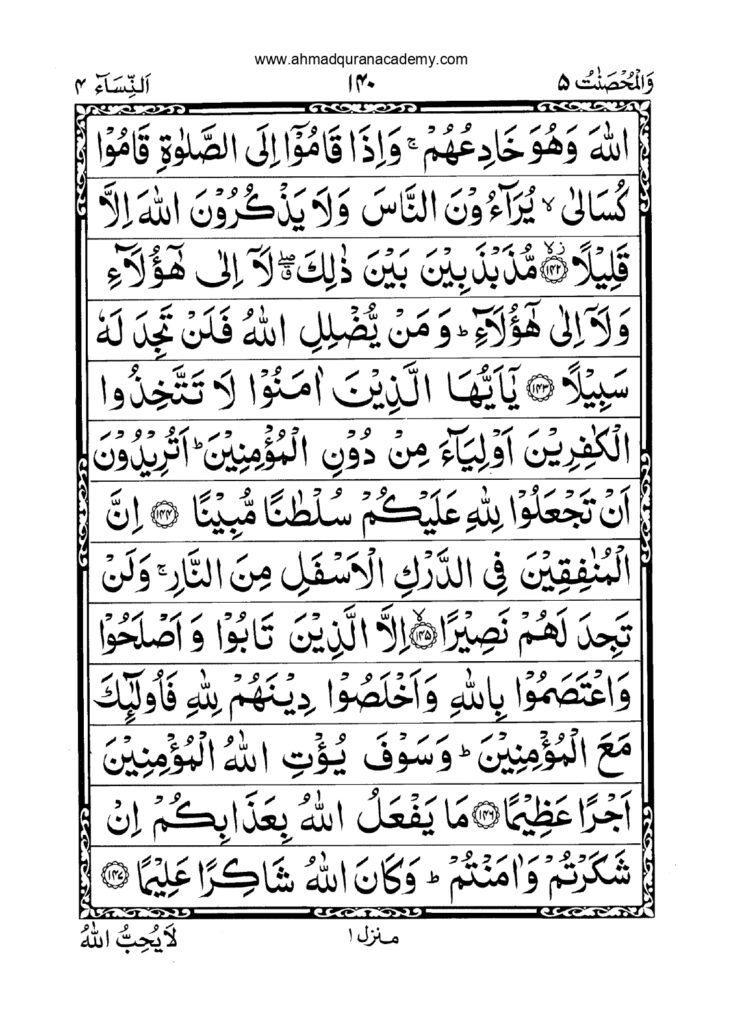 www.ahmadquranacademy.com
وَالْمُحْصَنٰتُ ۵ ۱۴۰ اَلنِّسَآء ۴
اللّٰهَ وَهُوَ خَادِعُهُمْ ۚ وَاِذَا قَامُوْۤا اِلَى الصَّلٰوةِ قَامُوْا
كُسَالٰى ۙ يُرَآءُوْنَ النَّاسَ وَلَا يَذْكُرُوْنَ اللّٰهَ اِلَّا
قَلِيْلًا ۙ۬﴿۱۴۲﴾ مُّذَبْذَبِيْنَ بَيْنَ ذٰلِكَ ۖۗ لَاۤ اِلٰى هٰۤؤُلَآءِ
وَلَاۤ اِلٰى هٰۤؤُلَآءِ ؕ وَمَنْ يُّضْلِلِ اللّٰهُ فَلَنْ تَجِدَ لَهٗ
سَبِيْلًا ﴿۱۴۳﴾ يٰۤاَيُّهَا الَّذِيْنَ اٰمَنُوْا لَا تَتَّخِذُوا
الْكٰفِرِيْنَ اَوْلِيَآءَ مِنْ دُوْنِ الْمُؤْمِنِيْنَ ؕ اَتُرِيْدُوْنَ
اَنْ تَجْعَلُوْا لِلّٰهِ عَلَيْكُمْ سُلْطٰنًا مُّبِيْنًا ﴿۱۴۴﴾ اِنَّ
الْمُنٰفِقِيْنَ فِى الدَّرْكِ الْاَسْفَلِ مِنَ النَّارِ ۚ وَلَنْ
تَجِدَ لَهُمْ نَصِيْرًا ۙ﴿۱۴۵﴾ اِلَّا الَّذِيْنَ تَابُوْا وَاَصْلَحُوْا
وَاعْتَصَمُوْا بِاللّٰهِ وَاَخْلَصُوْا دِيْنَهُمْ لِلّٰهِ فَاُولٰٓئِكَ
مَعَ الْمُؤْمِنِيْنَ ؕ وَسَوْفَ يُؤْتِ اللّٰهُ الْمُؤْمِنِيْنَ
اَجْرًا عَظِيْمًا ﴿۱۴۶﴾ مَا يَفْعَلُ اللّٰهُ بِعَذَابِكُمْ اِنْ
شَكَرْتُمْ وَاٰمَنْتُمْ ؕ وَكَانَ اللّٰهُ شَاكِرًا عَلِيْمًا ﴿۱۴۷﴾
منزل ۱
لَا يُحِبُّ اللّٰهُ